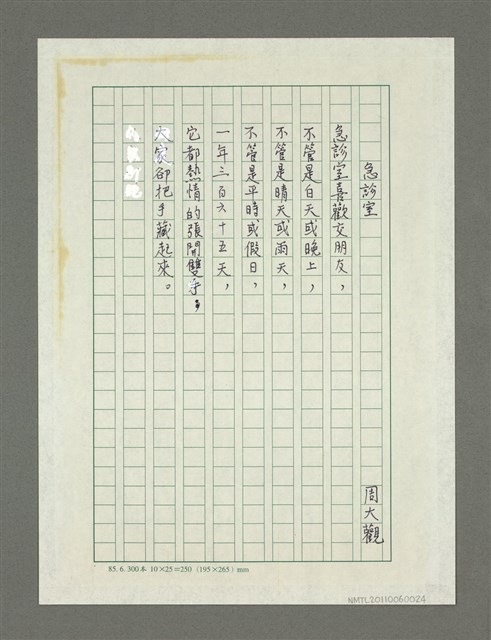 急診室
周大觀
急診室喜歡交朋友，
不管是白天或晚上，
不管是晴天或雨天，
不管是平時或假日，
一年三百六十五天，
它都熱情的張開雙手，
大家卻把手藏起來。
85. 6. 300本 10×25=250 (195×265) mm
NMTL20110060024